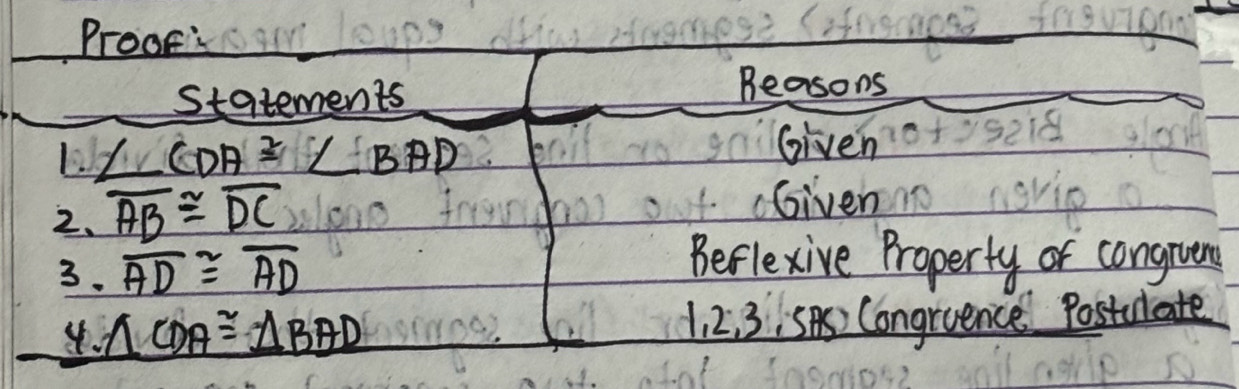 Proof:
Statements Reasons
1. ∠ CDA ≅ ∠ BAD. Given
2. AB ≅ DC Given
3. AD ≅ AD Reflexive Property of congruence
4. Δ CDA ≅ Δ BAD 1,2,3, SAS Congruence Postulate